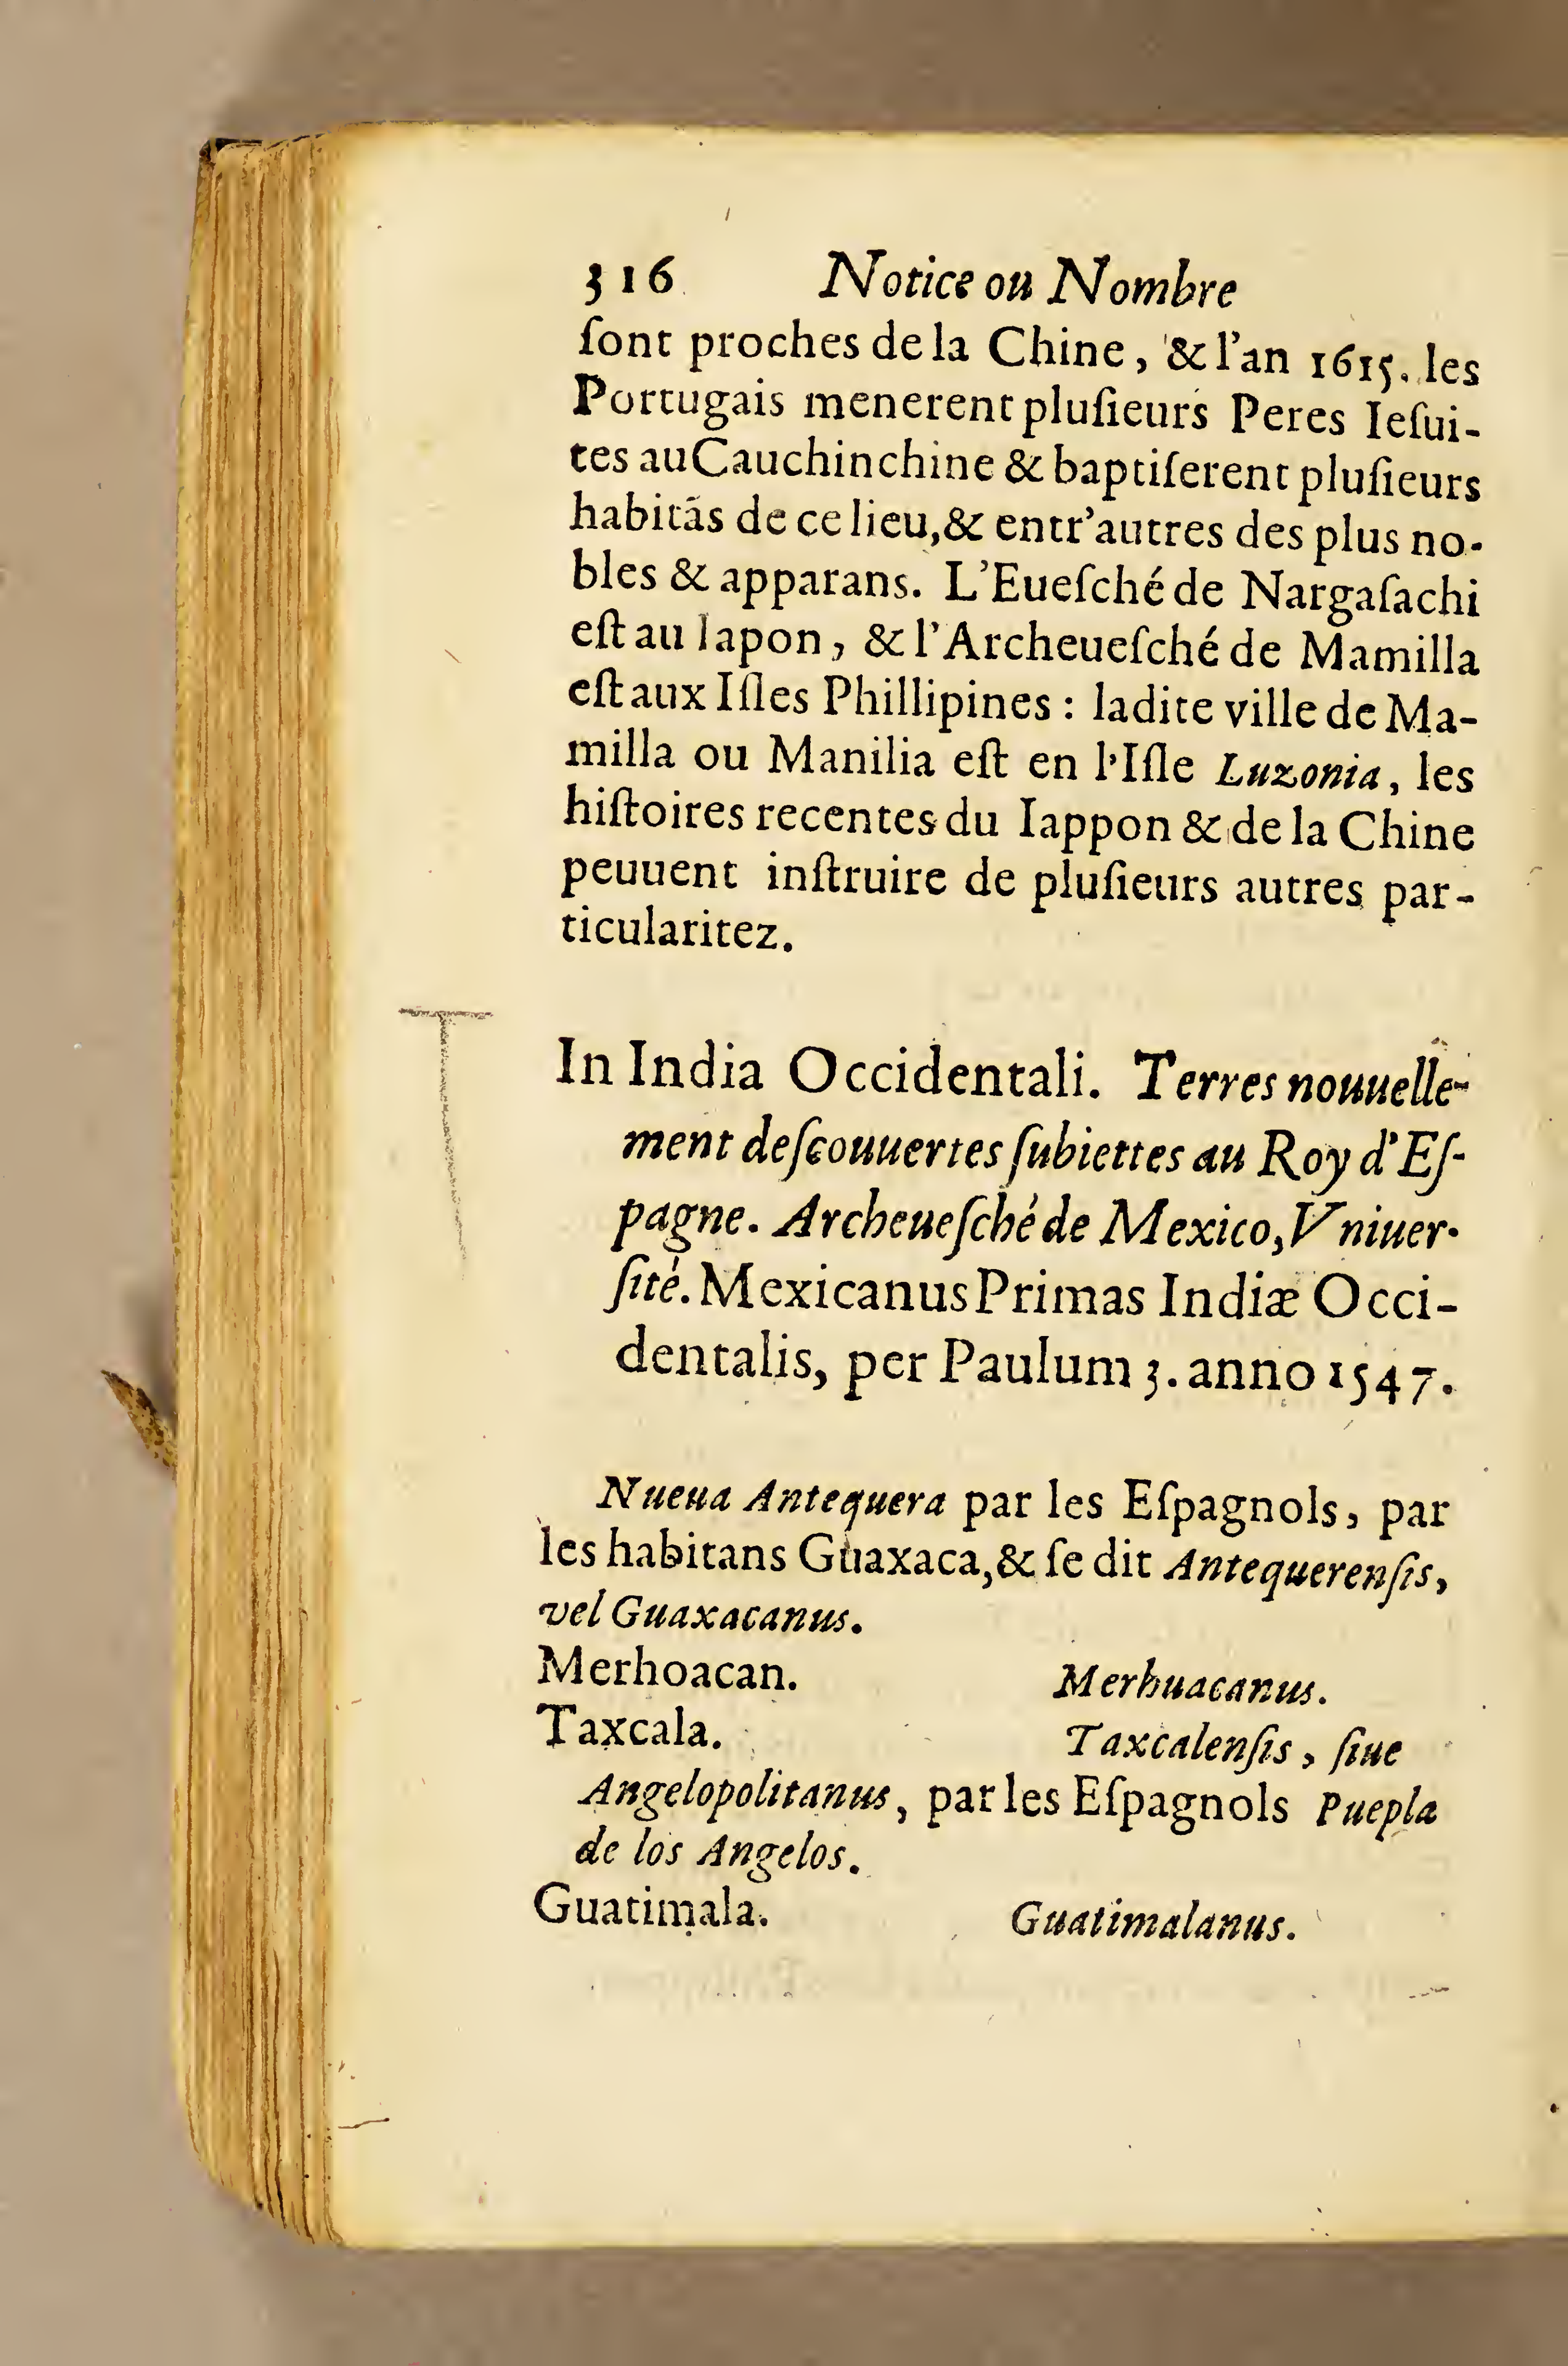 316 Notice ou Nombre
ſont proches de la Chine, & l'an 1615. les
Portugais menerent pluſieurs Peres Ieſui-
tes au Cauchinchine & baptiſerent pluſieurs
habitãs de ce lieu, & entr'autres des plus no-
bles & apparans. L'Eueſché de Nargaſachi
eſt au Iapon, & l'Archeueſché de Mamilla
eſt aux Iſles Phillipines : ladite ville de Ma-
milla ou Manilia eſt en l'Iſle Luzonia, les
hiſtoires recentes du Iappon & de la Chine
peuuent inſtruire de pluſieurs autres par-
ticularitez.
In India Occidentali. Terres nouuelle-
ment deſcouuertes ſubiettes au Roy d'Eſ-
pagne. Archeueſché de Mexico, Vniuer-
ſité. Mexicanus Primas Indiæ Occi-
dentalis, per Paulum 3. anno 1547.
Nueua Antequera par les Eſpagnols, par
les habitans Guaxaca, & ſe dit Antequerenſis,
vel Guaxacanus.
Merhoacan. Merhuacanus.
Taxcala. Taxcalenſis, ſiue
Angelopolitanus, par les Eſpagnols Puepla
de los Angelos.
Guatimala. Guatimalanus.